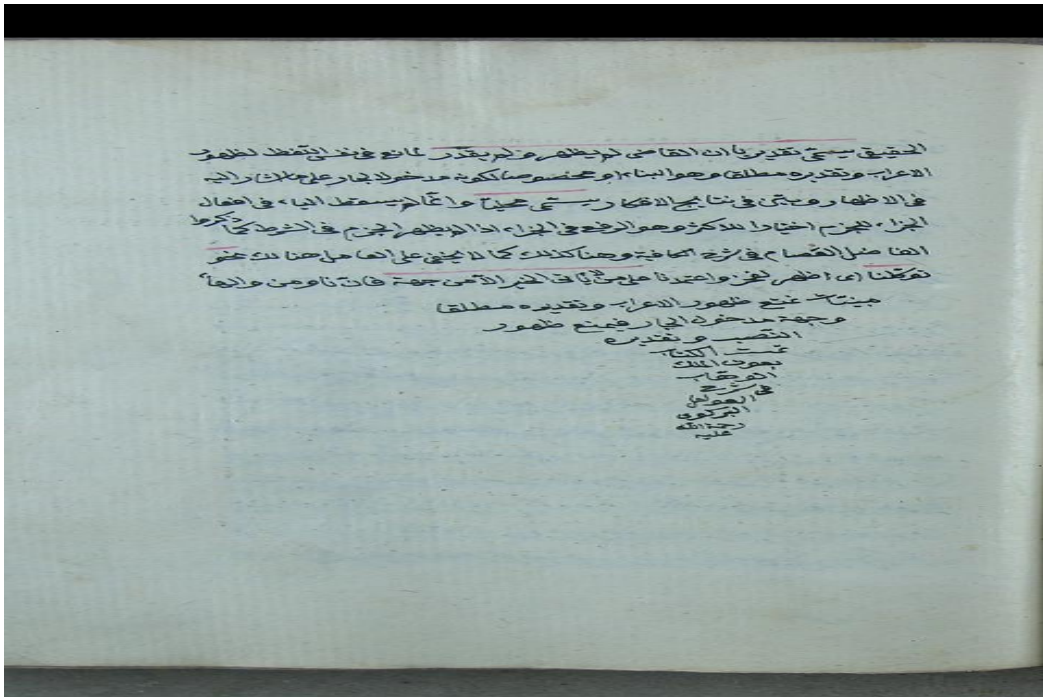 الحقيقى يسمى تقديريا ان القاضى لم يظهر ولم يقدر مانع فى نفس اللفظ لظهور
الاعراب وتقديره مطلق وهو البناء او مخصوصا ككونه مدخولا لجار على ما اشار اليه
فى الاظهار وسمى فى نتايج الافكار يسمى محليا وانما لم يسقط الياء فى افعال
الجزاء للجزم اختيارا للاكثر وهو الرفع فى الجزاء اذا لم يظهر الجزم فى الشرط كما ذكره
الفاضل العصام فى شرح الكافية وهنا كذلك كما لا يخفى على العامل هنالك نحو
توكلنا اى اظهر العجز واعتمدنا على من يأتى الخير الا من جهة فان نا ومن والهاء
مبنيات تمنع ظهور الاعراب وتقديره مطلقا
وجهة مدخول الجار فيمنع ظهور
النصب وتقديره
تمت الكتاب
بعون الملك
الوهاب
فى شرح
العوامل
البركوى
رحمة الله
عليه